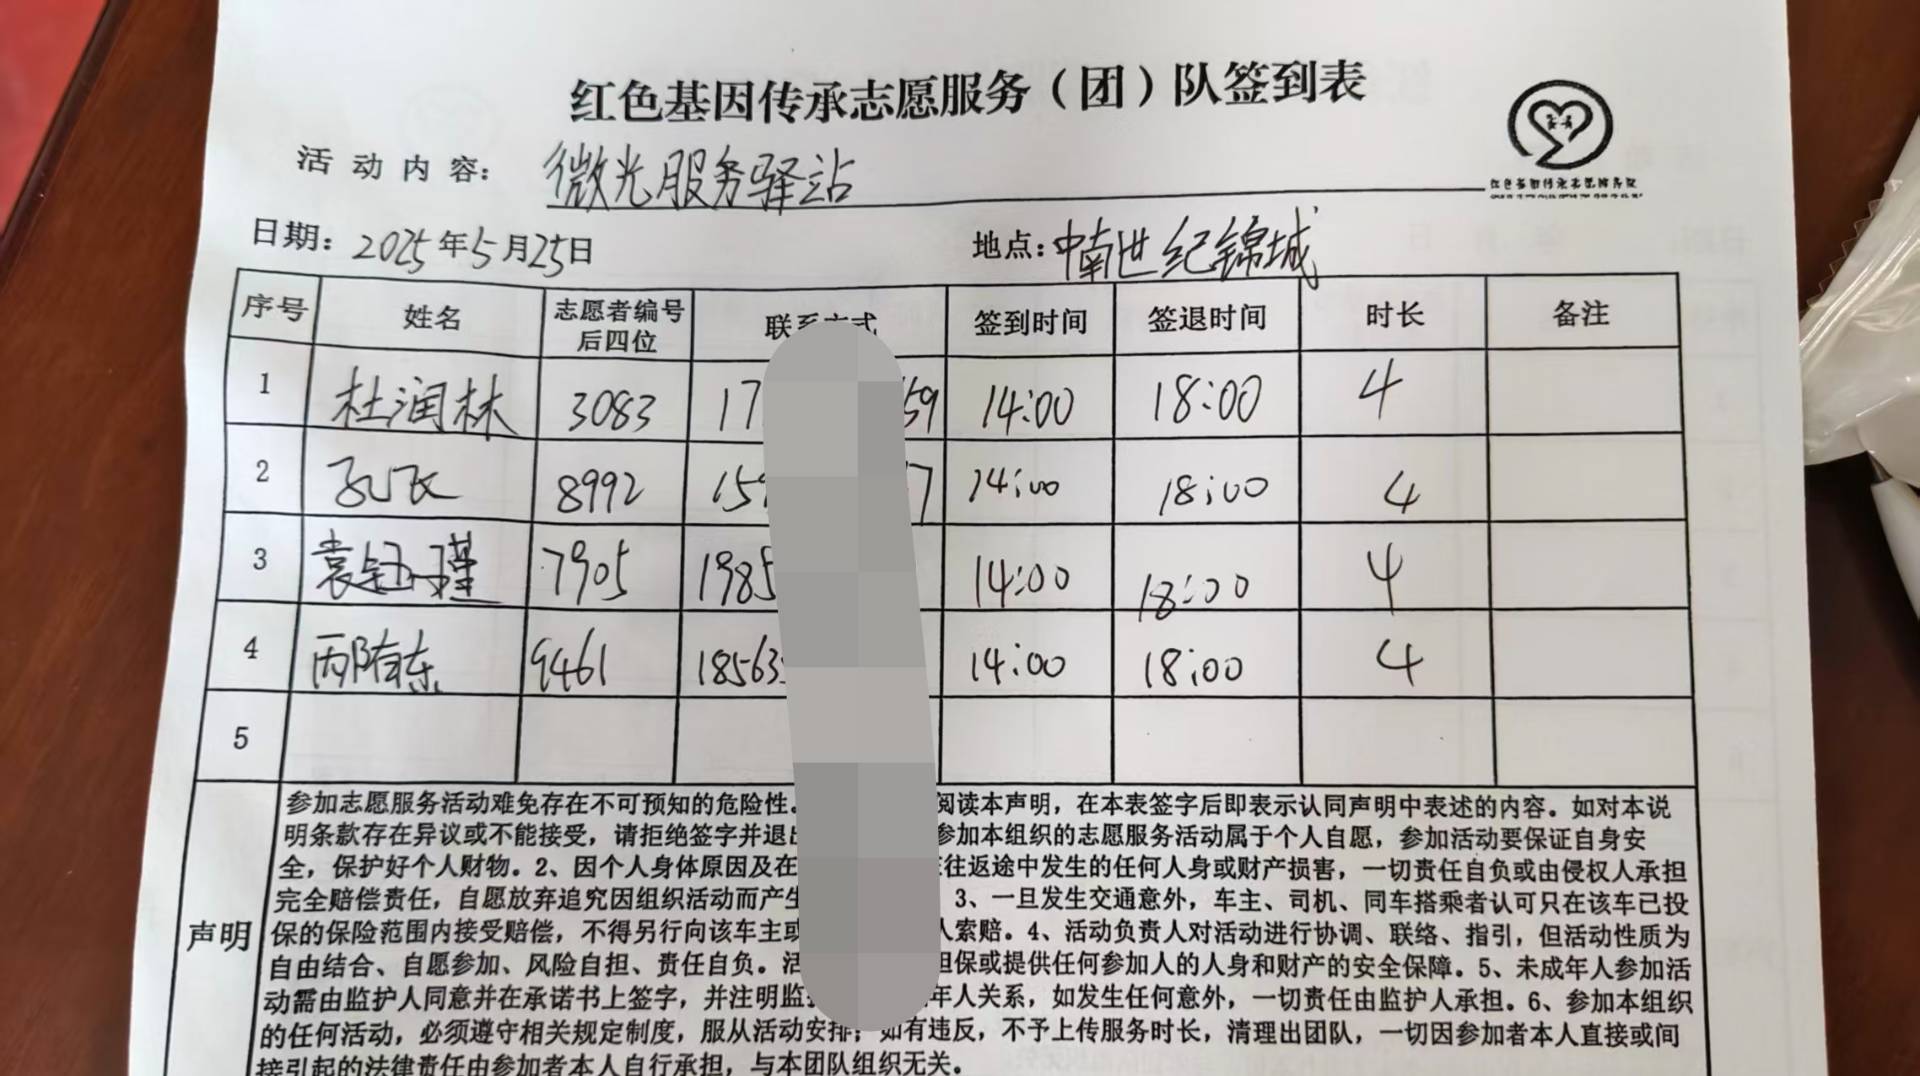 红色基因传承志愿服务（团）队签到表
活动内容：微光服务驿站
日期：2025年5月25日 地点：中南世纪锦城
序号 姓名 志愿者编号后四位 联系方式 签到时间 签退时间 时长 备注
1 杜润林 3083 17 59 14:00 18:00 4
2 孔飞 8992 159 7 14:00 18:00 4
3 袁钰瑾 7905 1985 14:00 18:00 4
4 邴有东 9461 18563 14:00 18:00 4
5
声明
参加志愿服务活动难免存在不可预知的危险性。 阅读本声明，在本表签字后即表示认同声明中表述的内容。如对本说
明条款存在异议或不能接受，请拒绝签字并退出 参加本组织的志愿服务活动属于个人自愿，参加活动要保证自身安
全，保护好个人财物。2、因个人身体原因及在 往返途中发生的任何人身或财产损害，一切责任自负或由侵权人承担
完全赔偿责任，自愿放弃追究因组织活动而产生 3、一旦发生交通意外，车主、司机、同车搭乘者认可只在该车已投
保的保险范围内接受赔偿，不得另行向该车主或 人索赔。4、活动负责人对活动进行协调、联络、指引，但活动性质为
自由结合、自愿参加、风险自担、责任自负。活 担保或提供任何参加人的人身和财产的安全保障。5、未成年人参加活
动需由监护人同意并在承诺书上签字，并注明监 年人关系，如发生任何意外，一切责任由监护人承担。6、参加本组织
的任何活动，必须遵守相关规定制度，服从活动安排；如有违反，不予上传服务时长，清理出团队，一切因参加者本人直接或间
接引起的法律责任由参加者本人自行承担，与本团队组织无关。